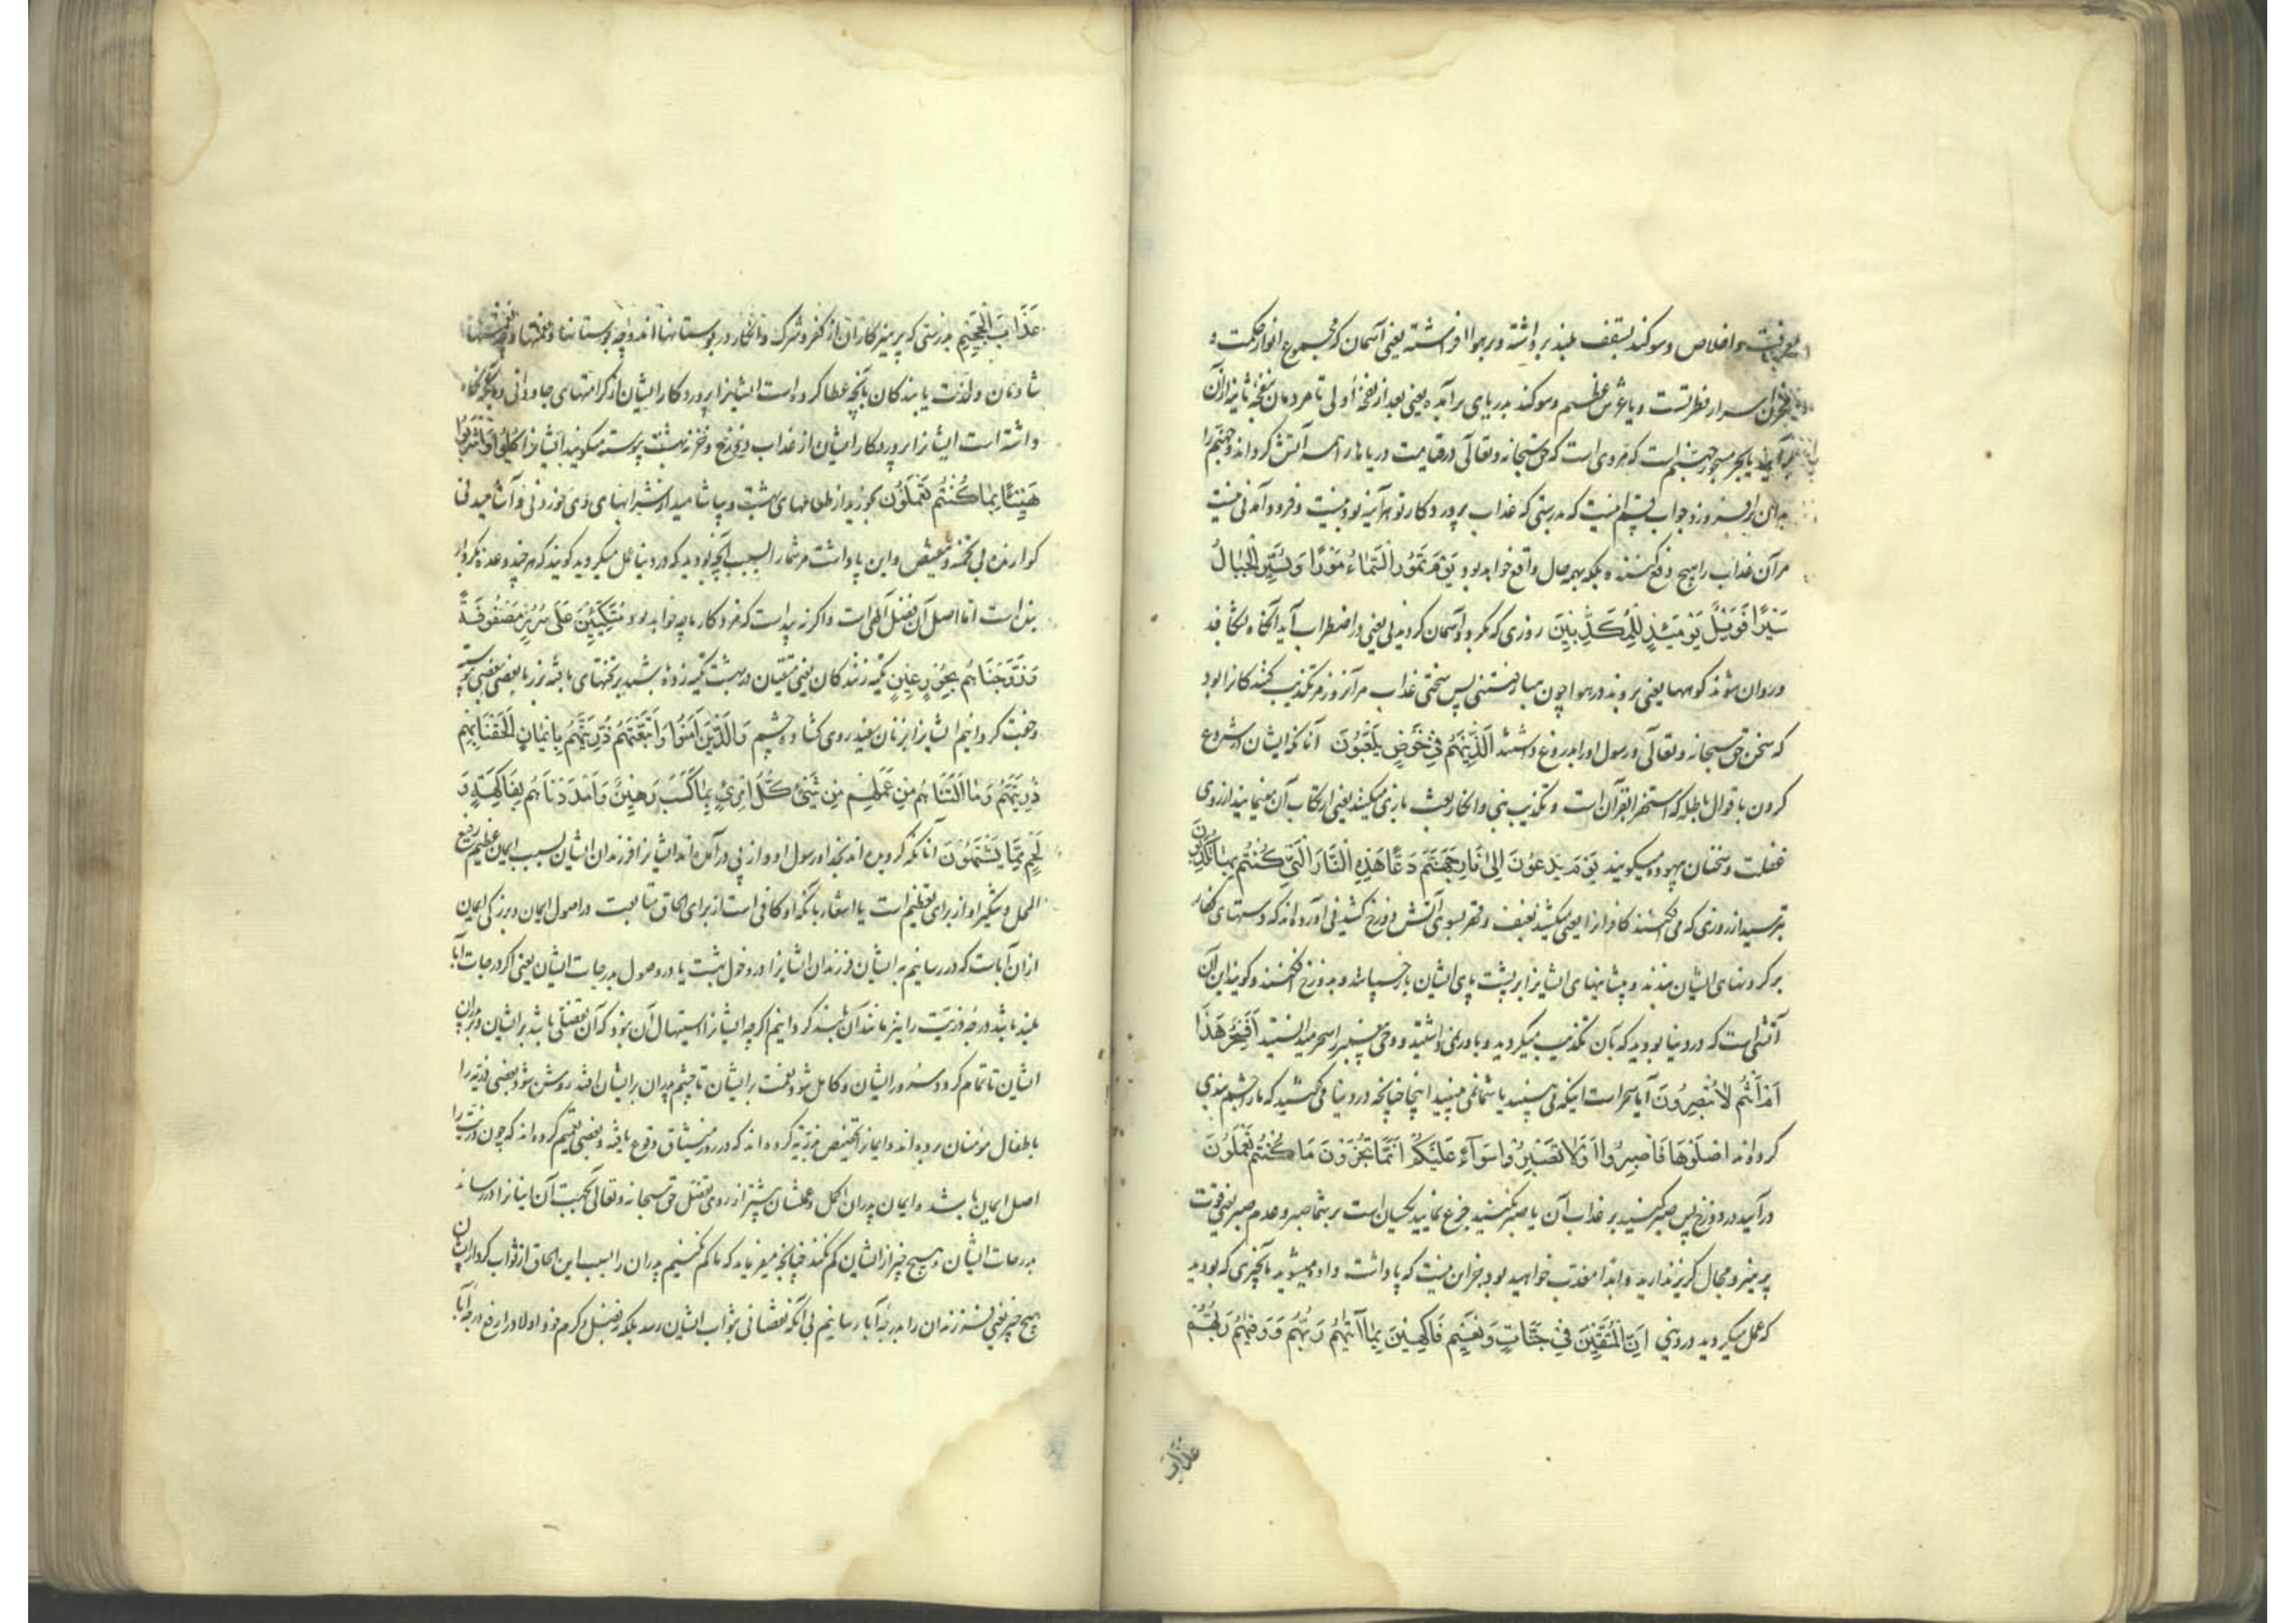 معرفت و اخلاص و سوکند بسقف بلند برداشته و بر هوا افراشته یعنی آسمان که مجموع انوار حکمت و
مخزن اسرار فطرتست و یا عرش عظیم و سوکند بدریای برآمده یعنی بعد از نفخهٔ اولی تا مردمان بنفخهٔ ثانیه از آن
برآیند یا بحر مسجور جهنم است که مروی است که حق سبحانه و تعالی در قیامت دریاها را همه آتش کرداند و جهنم را
بدان برافروزد و جواب قسم اینست که بدرستی که عذاب پرورد کار تو هرآینه بودنیست و فرود آمدنی نیست
مر آن عذاب را هیچ دفع کننده بلکه بهمه حال واقع خواهد بود یَوْمَ تَمُورُ السَّمَاءُ مَوْرًا وَتَسِیرُ الْجِبَالُ
سَیْرًا فَوَیْلٌ یَوْمَئِذٍ لِلْمُکَذِّبِینَ روزی که بکردد آسمان کردیدنی یعنی در اضطراب آید آنکاه شکافد
و روان شوند کوهها یعنی بروند در هوا چون هبا رفتنی پس سختی عذاب مر آنروز مر تکذیب کنندکانرا بود
که سخن حق سبحانه و تعالی و رسول او را بدروغ داشتند الَّذِینَ هُمْ فِی خَوْضٍ یَلْعَبُونَ آنانکه ایشان در شروع
کردن باقوال باطله که استهزا بقرآن است و تکذیب نبی و انکار بعث بازی میکنند یعنی ارتکاب آن مینمایند از روی
غفلت و سخنان بیهوده میکویند یَوْمَ یُدَعُّونَ إِلَی نَارِ جَهَنَّمَ دَعًّا هَذِهِ النَّارُ الَّتِی کُنْتُمْ بِهَا تُکَذِّبُونَ
بترسید از روزی که می کشند کافرانرا یعنی میکشند بعنف و قهر بسوی آتش دوزخ کشیدنی آورده اند که دستهای کفار
بر کردنهای ایشان بندند و پیشانیهای ایشانرا بر پشت پای ایشان باز بسپانند و بدوزخ افکنند و کویند این آن
آتشی است که در دنیا بودید که بآن تکذیب میکردید و باور نمی داشتید و وحی پیغمبر را سحر میدانستید أَفَسِحْرٌ هَذَا
أَمْ أَنْتُمْ لَا تُبْصِرُونَ آیا سحر است اینکه می بینید یا شما نمی بینید اینجا چنانچه در دنیا می کفتید که ما را چشم بندی
کرده اند اصْلَوْهَا فَاصْبِرُوا أَوْ لَا تَصْبِرُوا سَوَاءٌ عَلَیْکُمْ إِنَّمَا تُجْزَوْنَ مَا کُنْتُمْ تَعْمَلُونَ
درآیید در دوزخ پس صبر کنید بر عذاب آن یا صبر مکنید و جزع نمایید یکسان است بر شما صبر و عدم صبر یعنی قوت
پرهیز و مجال کریز ندارید و ابدا معذب خواهید بود جز این نیست که پاداشت داده میشوید بآنچیزی که بودید
که عمل میکردید در دنیی إِنَّ الْمُتَّقِینَ فِی جَنَّاتٍ وَنَعِیمٍ فَاکِهِینَ بِمَا آتَاهُمْ رَبُّهُمْ وَوَقَاهُمْ رَبُّهُمْ
عذاب
عَذَابَ الْجَحِیمِ بدرستی که پرهیزکاران از کفر و شرک و انکار در بوستانها اند و چه بوستانها و نعمتها و چه نعمتها
شادمان و لذت یابندکان بآنچه عطا کرده است ایشانرا پروردکار ایشان از کرامتهای جاودانی و بآنکه نکاه
داشته است ایشانرا پروردکار ایشان از عذاب دوزخ و خزنه بهشت پیوسته میکویند ایشانرا کُلُوا وَاشْرَبُوا
هَنِیئًا بِمَا کُنْتُمْ تَعْمَلُونَ بخورید از طعامهای بهشت و بیاشامید از شرابهای وی خوردنی و آشامیدنی
کوارنده بی تخمه و تنغیص و این پاداشت مر شما را بسبب آنچه بودید که در دنیا عمل میکردید کویند که هرچند وعده بکردار
بنده است اما اصل آن فضل الهی است و اکر نه پیداست که مزد کار ما چه خواهد بود مُتَّکِئِینَ عَلَی سُرُرٍ مَصْفُوفَةٍ
وَزَوَّجْنَاهُمْ بِحُورٍ عِینٍ تکیه زنندکان یعنی متقیان در بهشت تکیه زده باشند بر تختهای بافته بزر با بعضی ببعضی پیوسته
و جفت کردانیم ایشانرا بزنان سفید روی کشاده چشم وَالَّذِینَ آمَنُوا وَاتَّبَعَتْهُمْ ذُرِّیَّتُهُمْ بِإِیمَانٍ أَلْحَقْنَا بِهِمْ
ذُرِّیَّتَهُمْ وَمَا أَلَتْنَاهُمْ مِنْ عَمَلِهِمْ مِنْ شَیْءٍ کُلُّ امْرِئٍ بِمَا کَسَبَ رَهِینٌ وَأَمْدَدْنَاهُمْ بِفَاکِهَةٍ وَ
لَحْمٍ مِمَّا یَشْتَهُونَ آنانکه کرویده اند بخدا و رسول او و از پی درآمده اند ایشانرا فرزندان ایشان بسبب ایمان عظیم رفیع
المحل و تنکیر او از برای تعظیم است یا اشعار بانکه او کافی است از برای الحاق متابعت در اصول ایمان و بزرکی ایمان
از آن آباست که در رسانیم به ایشان فرزندان ایشانرا در دخول بهشت یا در وصول بدرجات ایشان یعنی اکر درجات آبا
بلند باشد درجهٔ ذریت را نیز مانند آن بلند کردانیم اکرچه ایشانرا استیهال آن نبود که آن تفضلی باشد بر ایشان و پدران
ایشان تا تمام کردد سرور ایشان و کامل شود نعمت بر ایشان تا چشم پدران بر ایشان افتد روشن شود بعضی ذریه را
باطفال مؤمنان برده اند و ایمانرا تخصیص کرده اند که در روز میثاق وقوع یافته و بعضی تعمیم کرده اند که چون ذریت را
اصل ایمان باشد و ایمان پدران اکمل و عملشان بیشتر از روی تفضل حق سبحانه و تعالی بجهت آن ایشانرا در رساند
بدرجات ایشان و هیچ چیز از ایشان کم نکند چنانچه میفرماید که ما کم نکنیم پدران را بسبب این الحاق از ثواب کردار ایشان
هیچ چیز یعنی فرزندان را بدرجهٔ آبا رسانیم بی آنکه نقصانی بثواب ایشان رسد بلکه بفضل و کرم خود اولاد را رفع درجه آبا